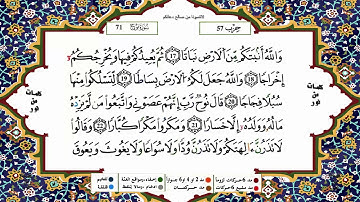 لاتنسونا من صالح دعائكم
حزب 57
سورة نوح
71
وَاللَّهُ أَنۢبَتَكُم مِّنَ ٱلْأَرْضِ نَبَاتًا ١٧ ثُمَّ يُعِيدُكُمْ فِيهَا وَيُخْرِجُكُمْ
إِخْرَاجًا ١٨ وَٱللَّهُ جَعَلَ لَكُمُ ٱلْأَرْضَ بِسَاطًا ١٩ لِّتَسْلُكُوا۟ مِنْهَا
سُبُلًا فِجَاجًا ٢٠ قَالَ نُوحٌ رَّبِّ إِنَّهُمْ عَصَوْنِى وَٱتَّبَعُوا۟ مَن لَّمْ يَزِدْهُ
مَالُهُۥ وَوَلَدُهُۥٓ إِلَّا خَسَارًا ٢١ وَمَكَرُوا۟ مَكْرًا كُبَّارًا ٢٢ وَقَالُوا۟
لَا تَذَرُنَّ ءَالِهَتَكُمْ وَلَا تَذَرُنَّ وَدًّا وَلَا سُوَاعًا وَلَا يَغُوثَ وَيَعُوقَ
كلمات
من
نور
كلمات
من
نور